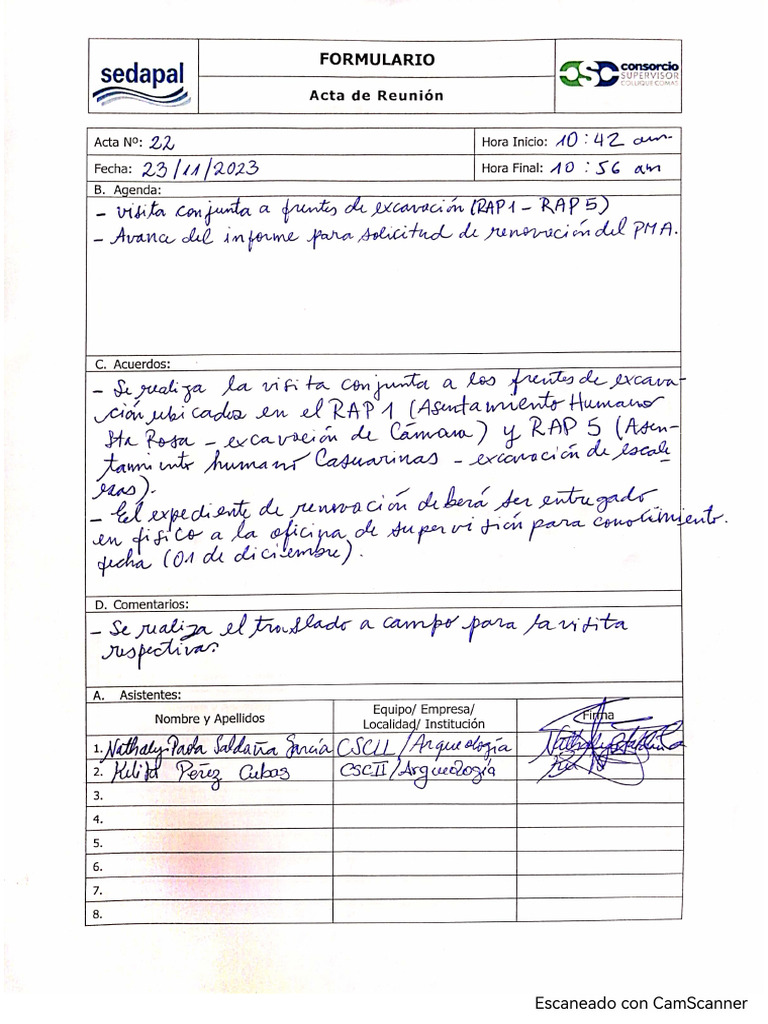 sedapal
FORMULARIO
Acta de Reunión
CSC consorcio
SUPERVISOR
COLLIQUE COMAS
Acta Nº: 22
Hora Inicio: 10:42 am
Fecha: 23/11/2023
Hora Final: 10:56 am
B. Agenda:
- visita conjunta a frentes de excavación (RAP1 - RAP 5)
- Avance del informe para solicitud de renovación del PMA.
C. Acuerdos:
- Se realiza la visita conjunta a los frentes de excava-
ción ubicados en el RAP 1 (Asentamiento Humano
Sta Rosa - excavación de Cámara) y RAP 5 (Asen-
tamiento humano Casuarinas - excavación de escale-
ras).
- El expediente de renovación deberá ser entregado
en físico a la oficina de supervisión para conocimiento.
fecha (01 de diciembre).
D. Comentarios:
- Se realiza el traslado a campo para la visita
respectiva.
A. Asistentes:
Nombre y Apellidos
Equipo/ Empresa/
Localidad/ Institución
Firma
1. Nathaly Paola Saldaña García CSCLL /Arqueología
2. Pérez Cubas CSCII/Arqueología
3.
4.
5.
6.
7.
8.
Escaneado con CamScanner